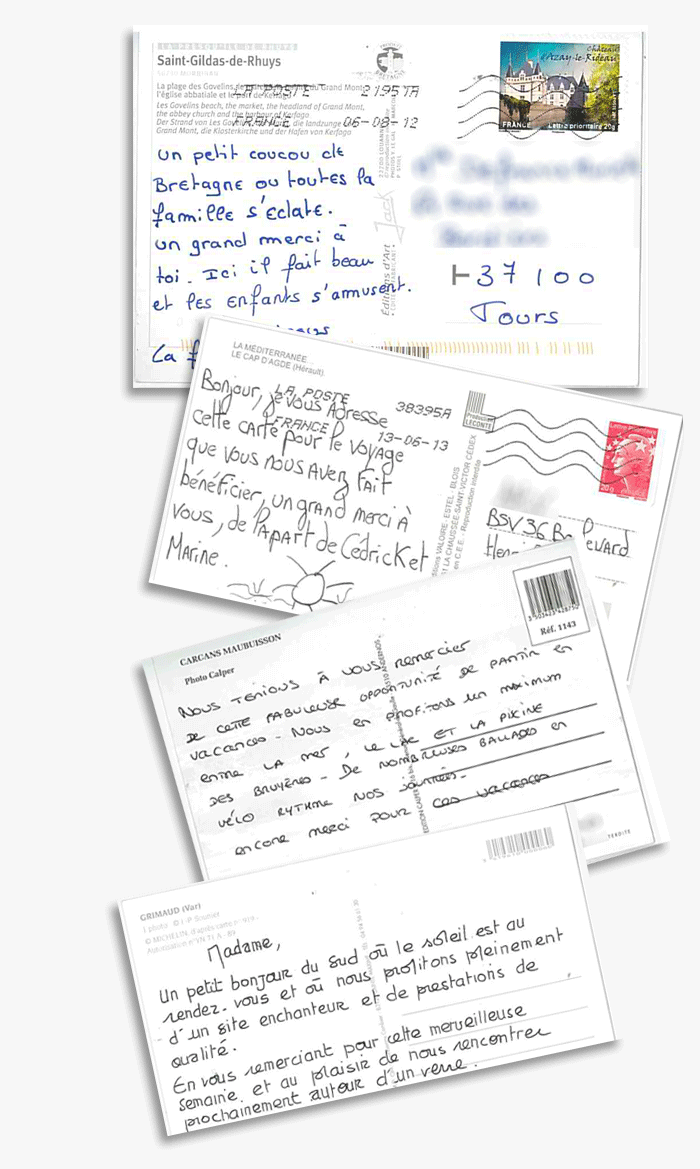 LA PRESQU'ILE DE RHUYS
Saint-Gildas-de-Rhuys
La plage des Govelins, du Grand Mont,
l'église abbatiale et le port de Kerfago
Les Govelins beach, the market, the headland of Grand Mont,
the abbey church and the harbour of Kerfago
Der Strand von Les Govelins, die landzunge
Grand Mont, die Klosterkirche und der Hafen von Kerfago
LA POSTE 21951A
FRANCE 06-08-12
Château
d'Azay-le-Rideau
FRANCE Lettre prioritaire 20g
un petit coucou de
Bretagne ou toutes la
famille s'eclate.
un grand merci à
toi. Ici il fait beau
et les enfants s'amusent.
La
Jack
Éditions d'Art
37100
Tours
LA MÉDITERRANÉE
LE CAP D'AGDE (Hérault)
LA POSTE 38395A
FRANCE 13-06-13
Bonjour, je vous Adresse
cette carte pour le voyage
que vous nous avez fait
bénéficier, un grand merci à
vous, de l'apart de Cedric ket
Marine.
Production
LECONTE
VALOIRE, ESTEL - BLOIS
LA CHAUSSÉE-SAINT-VICTOR CÉDEX
en C.E.E. - Reproduction interdite
Lettre Prioritaire
20g
BSV 36 Boulevard
Henri
CARCANS MAUBUISSON
Photo Calper
3 503423 428750
Réf. 1143
Nous tenions à vous remercier
de cette fabuleuse opportunité de partir en
vacances - Nous en profitons un maximum
entre la mer, le lac et la piscine
des bruyères - De nombreuses ballades en
vélo rythme nos journées.
encore merci pour ces vacances
GRIMAUD (Var)
1 photo © J.-P.
© MICHELIN, d'après carte n°
Autorisation n°
Madame,
Un petit bonjour du Sud où le soleil est au
rendez-vous et où nous profitons pleinement
d'un site enchanteur et de prestations de
qualité.
En vous remerciant pour cette merveilleuse
semaine, et au plaisir de nous rencontrer
prochainement autour d'un verre.